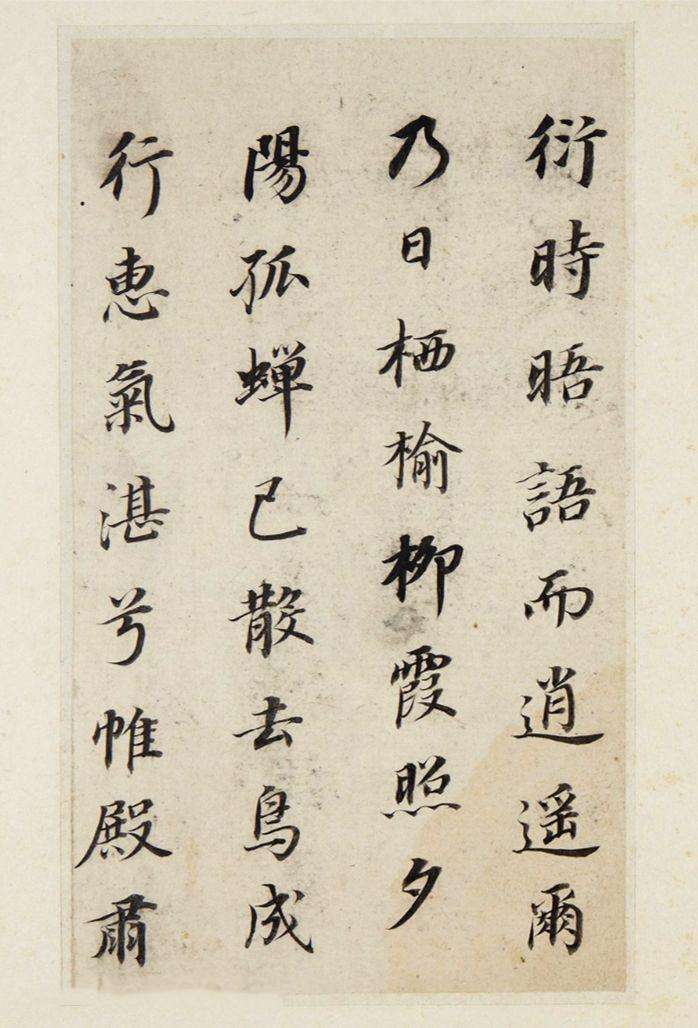 衍時晤語而逍遥爾
乃日栖榆柳霞照夕
陽孤蟬已散去鳥成
行惠氣湛兮帷殿肅